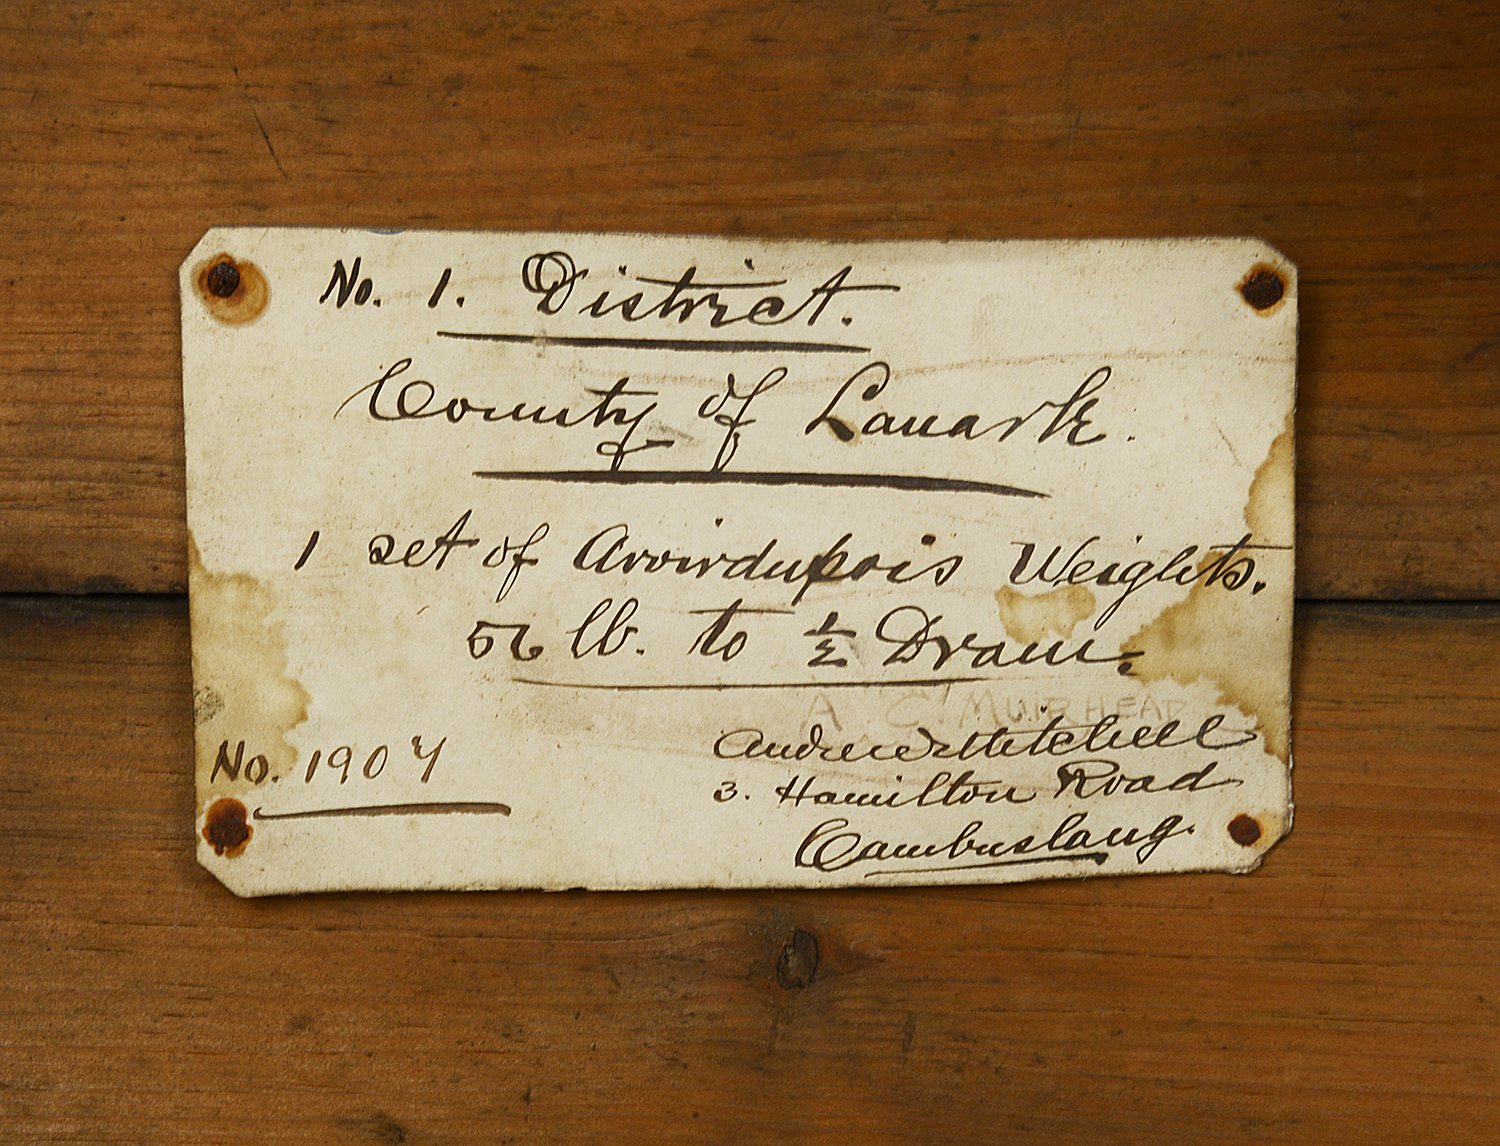 No. 1. District.
County of Lanark.
1 set of Avoirdupois Weights.
56 lb. to ½ Dram.
A C. MUIRHEAD
No. 1907
Andrew Mitchell
3. Hamilton Road
Cambuslang.